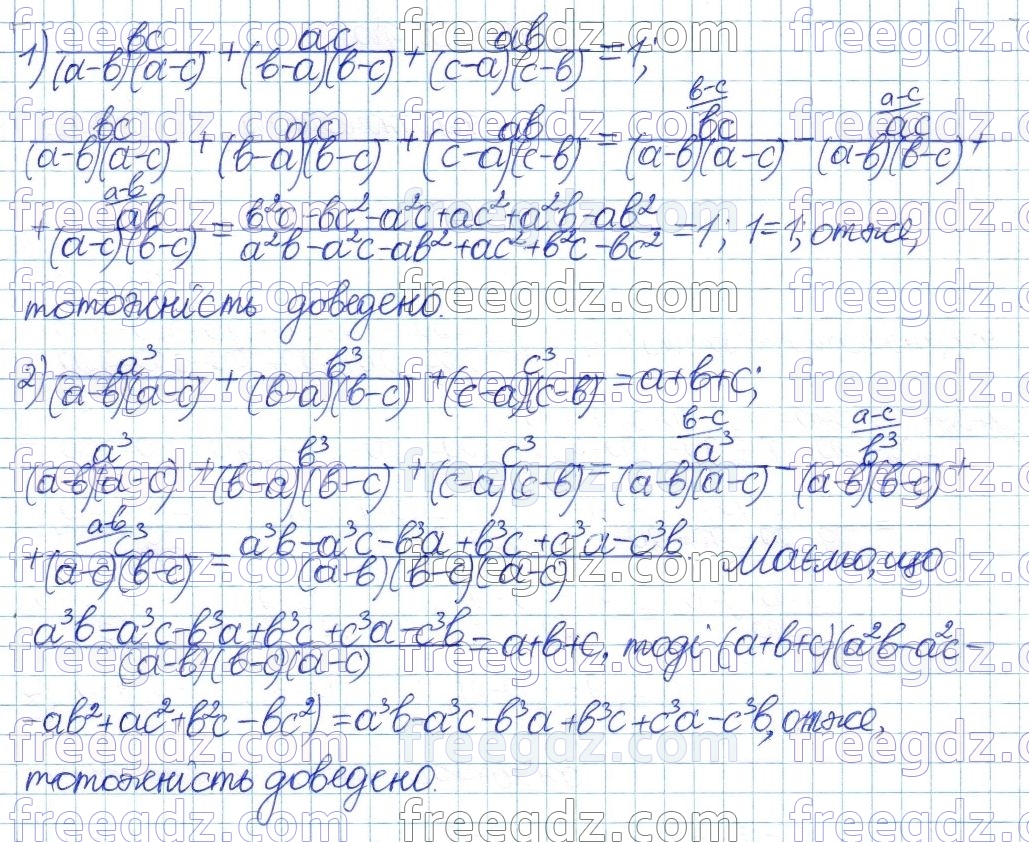 1) bc/((a-b)(a-c)) + ac/((b-a)(b-c)) + ab/((c-a)(c-b)) = 1;
bc/((a-b)(a-c)) + ac/((b-a)(b-c)) + ab/((c-a)(c-b)) = (b-c) bc/((a-b)(a-c)) - (a-c) ac/((a-b)(b-c)) +
+ (a-b) ab/((a-c)(b-c)) = (b²c-bc²-a²c+ac²+a²b-ab²)/(a²b-a²c-ab²+ac²+b²c-bc²) = 1; 1=1; отже,
тотожність доведено.
2) a³/((a-b)(a-c)) + b³/((b-a)(b-c)) + c³/((c-a)(c-b)) = a+b+c;
a³/((a-b)(a-c)) + b³/((b-a)(b-c)) + c³/((c-a)(c-b)) = (b-c) a³/((a-b)(a-c)) - (a-c) b³/((a-b)(b-c)) +
+ (a-b) c³/((a-c)(b-c)) = (a³b-a³c-b³a+b³c+c³a-c³b)/((a-b)(b-c)(a-c)). Маємо, що
(a³b-a³c-b³a+b³c+c³a-c³b)/((a-b)(b-c)(a-c)) = a+b+c, тоді (a+b+c)(a²b-a²c-
-ab²+ac²+b²c-bc²) = a³b-a³c-b³a+b³c+c³a-c³b, отже,
тотожність доведено.
freegdz.com